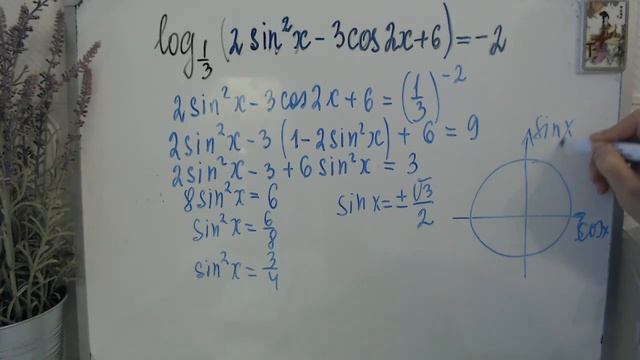 log_{1/3} (2 sin²x - 3cos 2x + 6) = -2
2 sin²x - 3 cos 2x + 6 = (1/3)^{-2}
2 sin²x - 3 (1 - 2 sin²x) + 6 = 9
2 sin²x - 3 + 6 sin²x = 3
8 sin²x = 6
sin²x = 6/8
sin²x = 3/4
sin x = ± √3/2
sin x
cos x